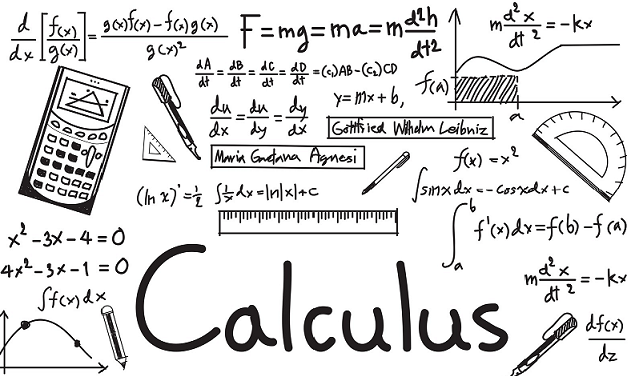 d/dx [f(x)/g(x)] = g(x)f(x) - f(x)g(x) / g(x)²
F = mg = ma = m d²h/dt²
m d²x/dt² = -kx
dA/dt = dB/dt = dC/dt = dD/dt = (c₁)AB - (c₂)CD
f(a)
y = mx + b,
du/dx = du/dy = dy/dx
a
Gottfried Wilhelm Leibniz
Maria Gaetana Agnesi
f(x) = x²
(ln x)' = 1/2
∫ 1/x dx = ln|x| + c
∫ sinx dx = -cosxdx + c
∫ₐᵇ f'(x) dx = f(b) - f(a)
x² - 3x - 4 = 0
4x² - 3x - 1 = 0
m d²x/dt² = -kx
∫f(x) dx
Calculus
df(x)/dz